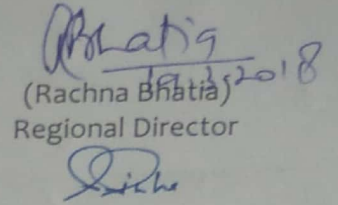 RBhatia
2018
(Rachna Bhatia)
Regional Director